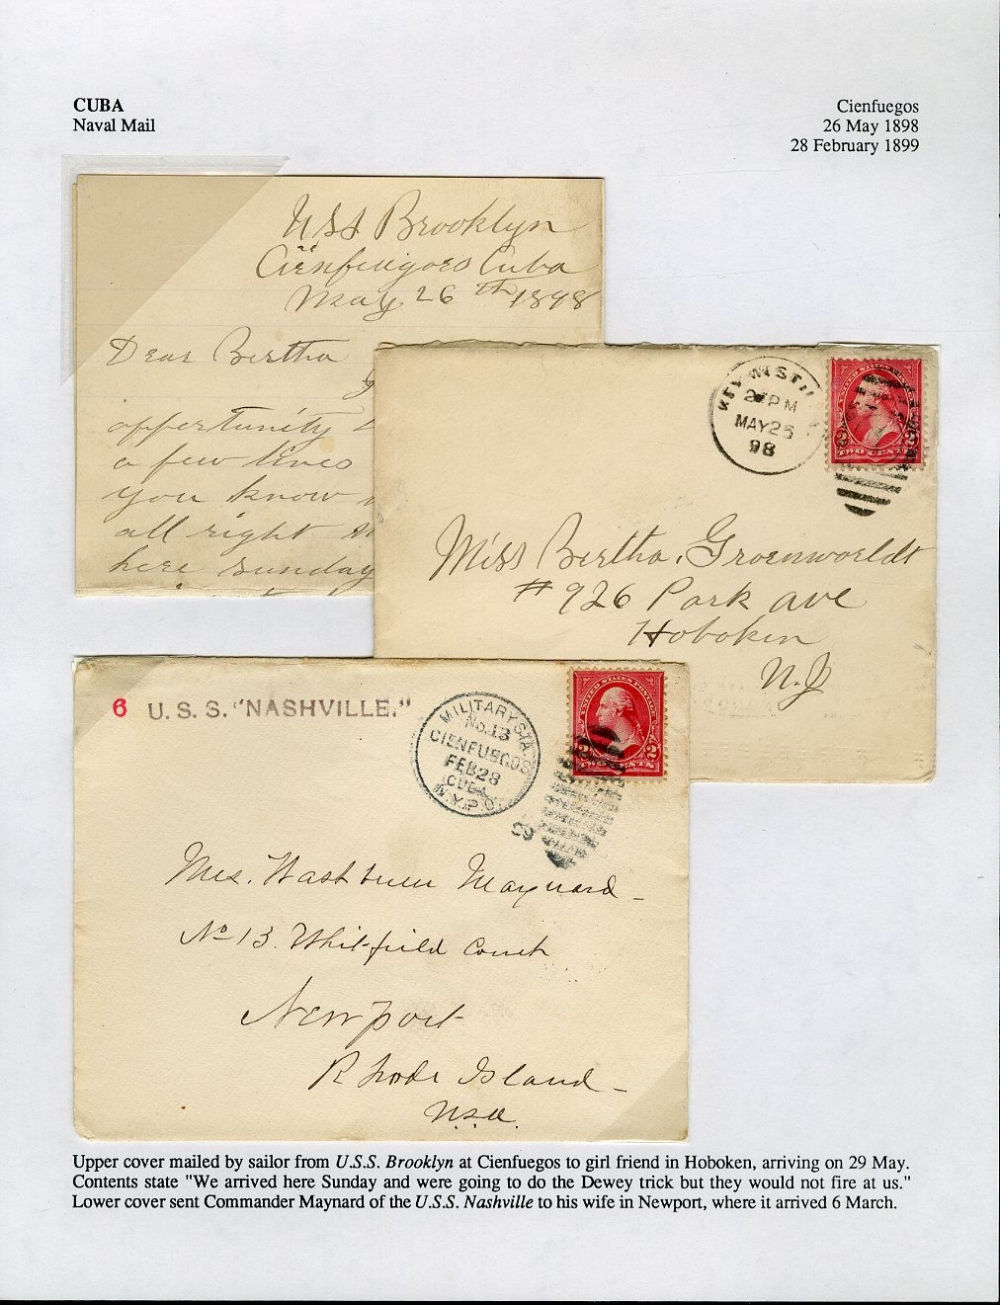 CUBA
Naval Mail
Cienfuegos
26 May 1898
28 February 1899
USS Brooklyn
Cienfuigoes Cuba
May 26th 1898
Dear Bertha
oppertunity
a few lines
you know
all right
here Sunday
KEY WEST
2 PM
MAY 25
98
TWO CENTS
Miss Bertha Groenworldt
# 926 Park ave
Hoboken
N.J
6 U. S. S. "NASHVILLE."
MILITARY STA.
No. 13
CIENFUEGOS
FEB 28
CUBA
N.Y.P.O.
UNITED STATES POSTAGE
2 2
TWO CENTS
Mrs. Washburn Maynard_
No 13. Whitfield Court
Newport
Rhode Island_
U.S.A.
Upper cover mailed by sailor from U.S.S. Brooklyn at Cienfuegos to girl friend in Hoboken, arriving on 29 May.
Contents state "We arrived here Sunday and were going to do the Dewey trick but they would not fire at us."
Lower cover sent Commander Maynard of the U.S.S. Nashville to his wife in Newport, where it arrived 6 March.